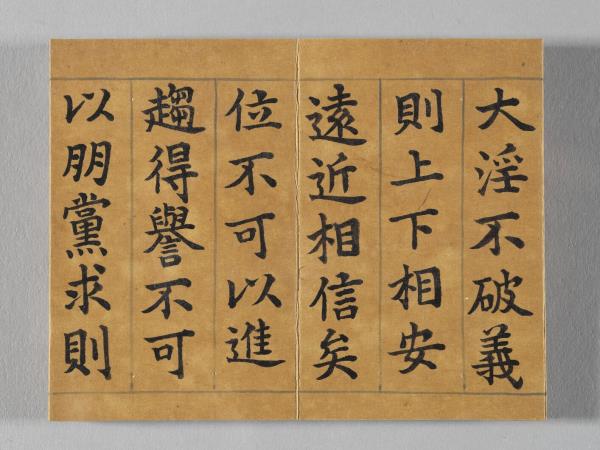 大淫不破義
則上下相安
遠近相信矣
位不可以進
趨得譽不可
以朋黨求則